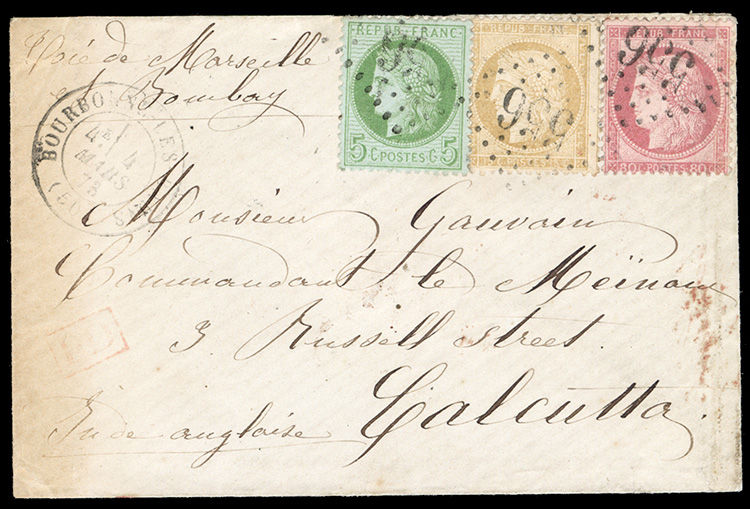 Voie de Marseille
et Bombay
BOURBONNE-LES
4E 4
MARS
73
REPUB FRANC
5 C POSTES C 5
REPUB FRAN
536
REPUB FRANC
80C POSTES 80C
536
Monsieur Gauvain
Commandant le Meïnam
3 Russell street
Calcutta
Inde anglaise
PD